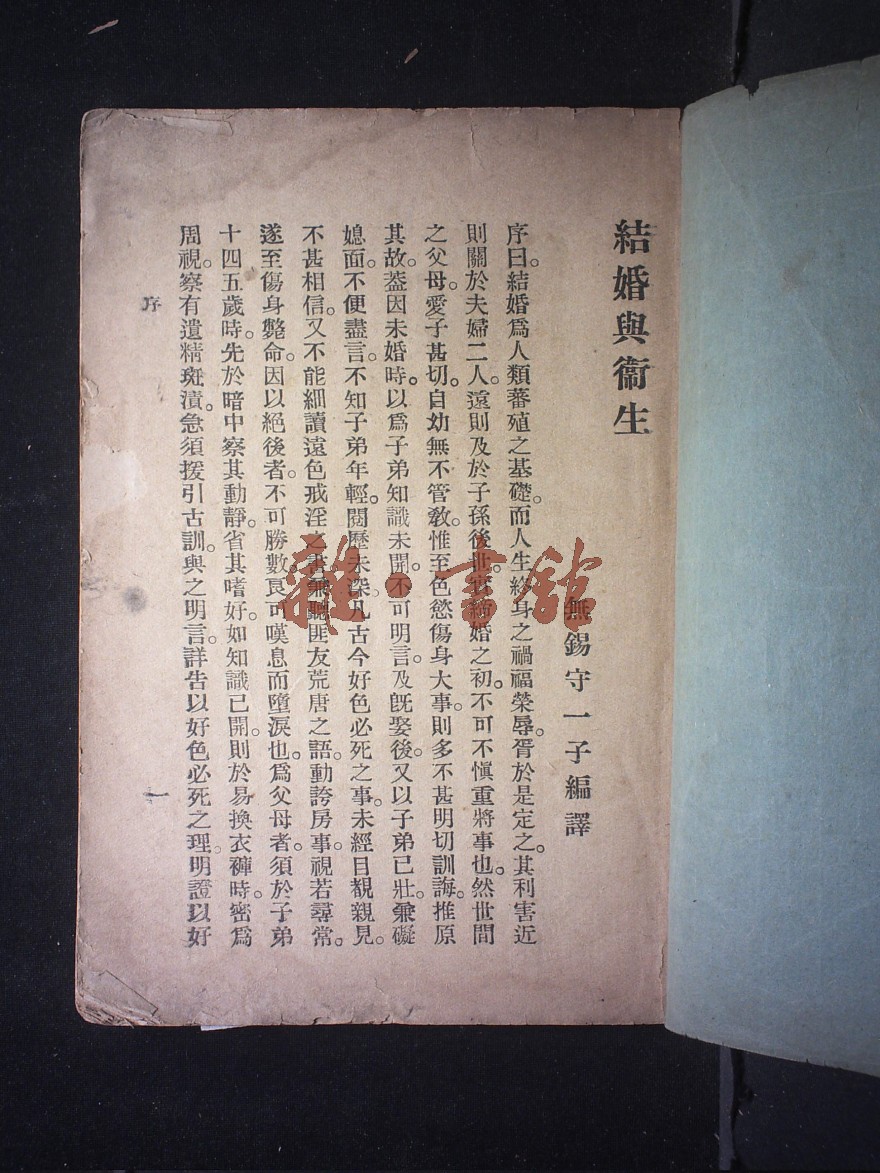 結婚與衞生
無錫守一子編譯
序曰。結婚爲人類蕃殖之基礎。而人生終身之禍福榮辱。胥於是定之。其利害近
則關於夫婦二人。遠則及於子孫後世。實結婚之初。不可不愼重將事也。然世間
之父母。愛子甚切。自幼無不管敎。惟至色慾傷身大事。則多不甚明切訓誨。推原
其故。葢因未婚時。以爲子弟知識未開。不可明言。及旣娶後。又以子弟已壯。兼礙
媳面。不便盡言。不知子弟年輕。閱歷未深。凡古今好色必死之事。未經目覩親見。
不甚相信。又不能細讀遠色戒淫之書。兼聽匪友荒唐之語。動誇房事。視若尋常。
遂至傷身斃命。因以絕後者。不可勝數。良可嘆息而墮淚也。爲父母者。須於子弟
十四五歲時。先於暗中察其動靜。省其嗜好。如知識已開。則於易換衣褲時。密爲
周視。察有遺精斑漬。急須援引古訓。與之明言。詳告以好色必死之理。明證以好
序
一
雜·書館